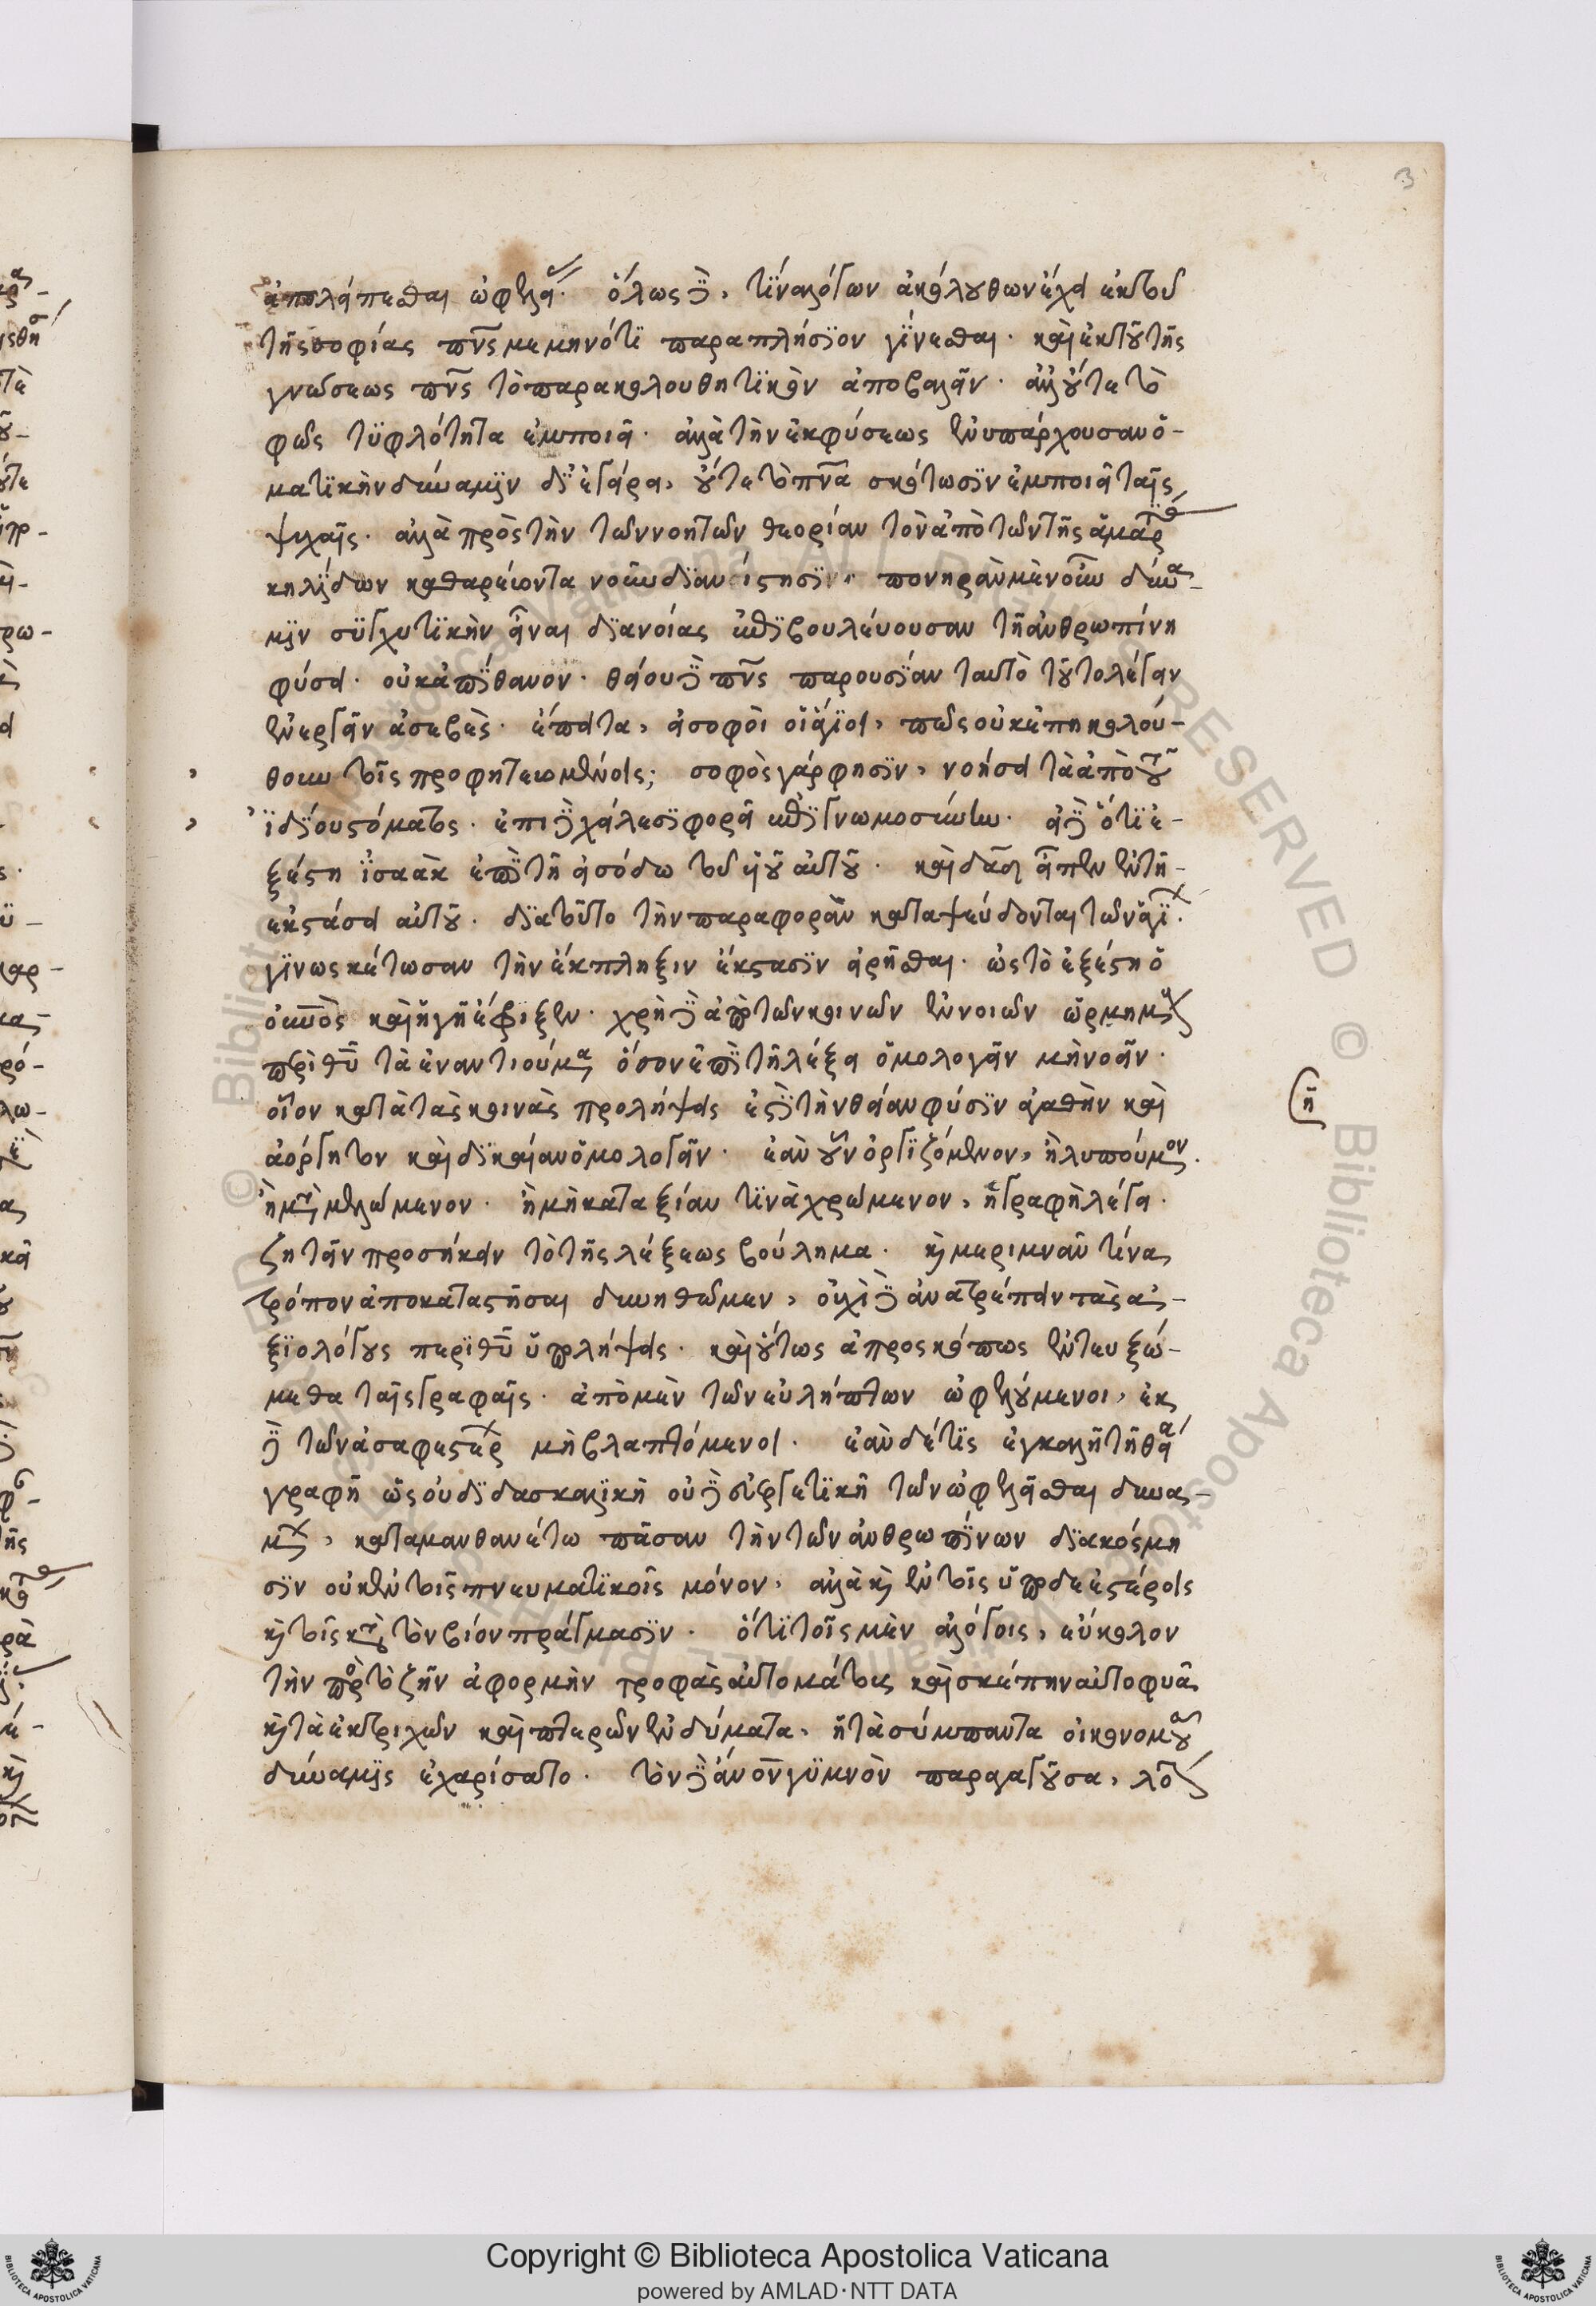 3
ἀπολείπεσθαι ὠφελείας. ὅλως δὲ, τίνα λόγον ἀκόλουθον ἔχει ἐκ τοῦ
τῆς σοφίας πνς μεμηνότι παραπλήσιον γίνεσθαι. καὶ ἐκ τοῦ τῆς
γνώσεως πνς τὸ παρακολουθητικὸν ἀποβαλεῖν. ἀλλ' οὔτε τὸ
φῶς τυφλότητα ἐμποιεῖ. ἀλλὰ τὴν ἐκ φύσεως ἐνυπάρχουσαν ὁ-
ματικὴν δύναμιν διεγείρει, οὔτε τὸ πνα σκότωσιν ἐμποιεῖ ταῖς
ψυχαῖς. ἀλλὰ πρὸς τὴν τῶν νοητῶν θεορίαν τὸν ἀπὸ τῶν τῆς ἁμαρτ
κηλίδων καθαρεύοντα νοῦν διανίστησιν. πονηρὰν μὲν οὖν δύνα-
μιν συγχυτικὴν εἶναι διανοίας ἐπιβουλεύουσαν τῇ ἀνθρωπίνῃ
φύσει. οὐκ ἀπίθανον. θείου δὲ πνς παρουσίαν ταυτὸ τοῦτο λέγειν
ἐνεργεῖν ἀσεβὲς. ἔπειτα, εἰ σοφοὶ οἱ ἅγιοι, πῶς οὐκ ἐπηκολού-
θουν τοῖς προφητευομένοις; σοφὸς γάρ φησιν, νοήσει τὰ ἀπὸ τοῦ
ἰδίου στόματος. ἐπὶ δὲ χείλεσι φορεῖ ἐπιγνωμοσύνην. εἰ δὲ ὅτι ἐ-
ξέστη ἰσαὰκ ἐπὶ τῇ εἰσόδω τοῦ υἱοῦ αὐτοῦ. καὶ δαδ εἶπεν ἐν τῇ
ἐκστάσει αὐτοῦ. διατοῦτο τὴν παραφορὰν καταψεύδονται τῶν ἁγί.
γινωσκέτωσαν τὴν ἔκπληξιν ἔκστασιν εἰρῆσθαι. ὡς τὸ ἐξέστη ὁ
οὐνὸς καὶ ἡ γῆ ἔφριξεν. χρὴ δὲ ἀπὸ τῶν κοινῶν ἐννοιῶν ὡρμημ
περὶ θῦ τὰ ἐναντιούμα ὅσον ἐπὶ τῇ λέξει ὁμολογεῖν μὴ νοεῖν.
οἷον κατὰ τὰς κοινὰς προλήψεις ἐστὶ τὴν θείαν φύσιν ἀγαθὴν καὶ
ἀόργητον καὶ δικαίαν ὁμολογεῖν. ἐὰν οὖν ὀργιζόμενον, ἢ λυπούμον.
ἢ μεταμελώμενον. ἢ μὴ κατ' ἀξίαν τινὰ χρώμενον, ἡ γραφὴ λέγει.
ζητεῖν προσήκειν τὸ τῆς λέξεως βούλημα. κ μεριμνᾶν τίνα
τρόπον ἀποκαταστῆσαι δυνηθῶμεν, οὐχὶ δὲ ἀνατρέπειν τὰς ἀ-
ξιολόγους περὶ θῦ ὑπολήψεις. καὶ οὕτως ἀπροσκόπως ἐντευξώ-
μεθα ταῖς γραφαῖς. ἀπὸ μὲν τῶν εὐλήπτων ὠφελούμενοι, ἐκ
δὲ τῶν ἀσαφεστέρ μὴ βλαπτόμενοι. ἐὰν δέ τις ἐγκαλῇ τῇ θεία
γραφῇ ὡς οὐ διδασκαλικῇ οὐδὲ εὐεργετικῇ τῶν ὠφελεῖσθαι δυνα-
μ, καταμανθανέτω πᾶσαν τὴν τῶν ἀνθρωπίνων διακόσμη
σιν οὐκ ἐν τοῖς πνευματικοῖς μόνον, ἀλλὰ κ ἐν τοῖς ὑποδεεστέροις
κ τοῖς κατὰ τὸν βίον πράγμασιν. ὅτι τοῖς μὲν ἀλόγοις, εὔκολον
τὴν πρὸς τὸ ζῆν ἀφορμὴν τροφὰς αὐτομάτους καὶ σκέπην αὐτοφυᾶ
κ τὰ ἐκ τριχῶν καὶ πτερῶν ἐνδύματα, ἡ τὰ σύμπαντα οἰκονομοῦσα
δύναμις ἐχαρίσατο. τὸν δὲ ἄνον γυμνὸν παραγαγοῦσα, λόγ
ῆ
Copyright © Biblioteca Apostolica Vaticana
powered by AMLAD·NTT DATA